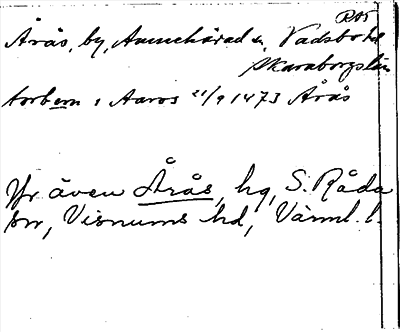 RAp
Årås, by, Amnehärad sn, Vadsbo hd
Skaraborgs län
torbern i Aaros 21/9 1473 Årås
Jfr även Årås, hg, S. Råda
sn, Visnums hd, Värml. l.